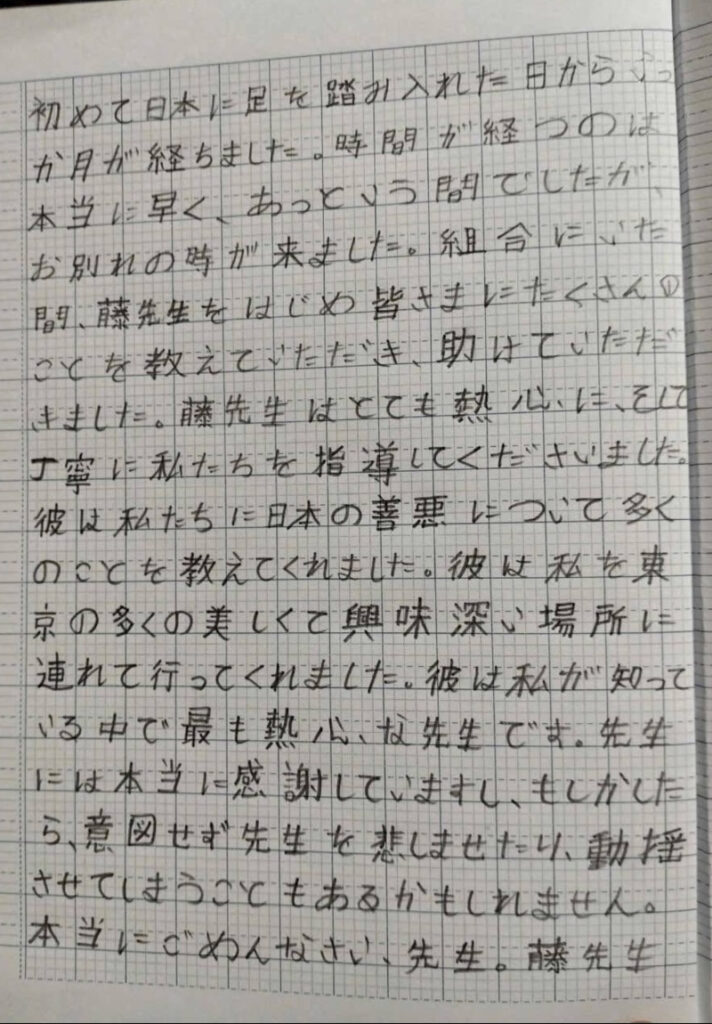 初めて日本に足を踏み入れた日から
か月が経ちました。時間が経つのは
本当に早く、あっという間でしたが、
お別れの時が来ました。組合にいた
間、藤先生をはじめ皆さまにたくさんの
ことを教えていただき、助けていただ
きました。藤先生はとても熱心に、そして
丁寧に私たちを指導してくださいました。
彼は私たちに日本の善悪について多く
のことを教えてくれました。彼は私を東
京の多くの美しくて興味深い場所に
連れて行ってくれました。彼は私が知って
いる中で最も熱心な先生です。先生
には本当に感謝していますし、もしかした
ら、意図せず先生を悲しませたり、動揺
させてしまうこともあるかもしれません。
本当にごめんなさい、先生。藤先生